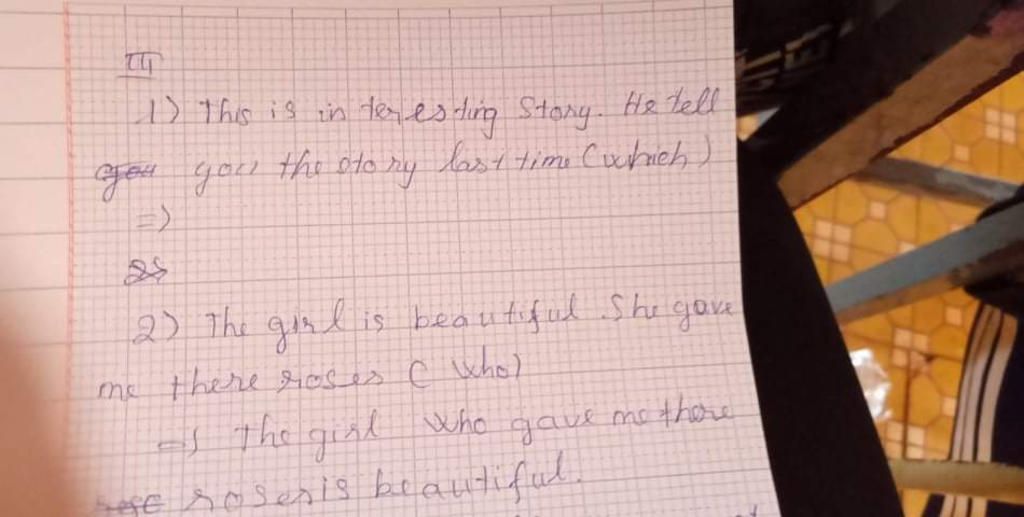 III
1) This is interesting story. He tell
you the story last time (which)
=>
2) The girl is beautiful. She gave
me there roses (who)
=> The girl who gave me there
roses is beautiful.